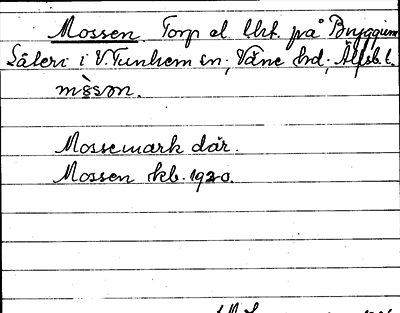 Mossen Torp el. lht. på Bryggum
Säteri i V. Tunhem sn; Väne hd; Älfsb. l.
mòssən.
Mossemark där.
Mossen kb. 1920.